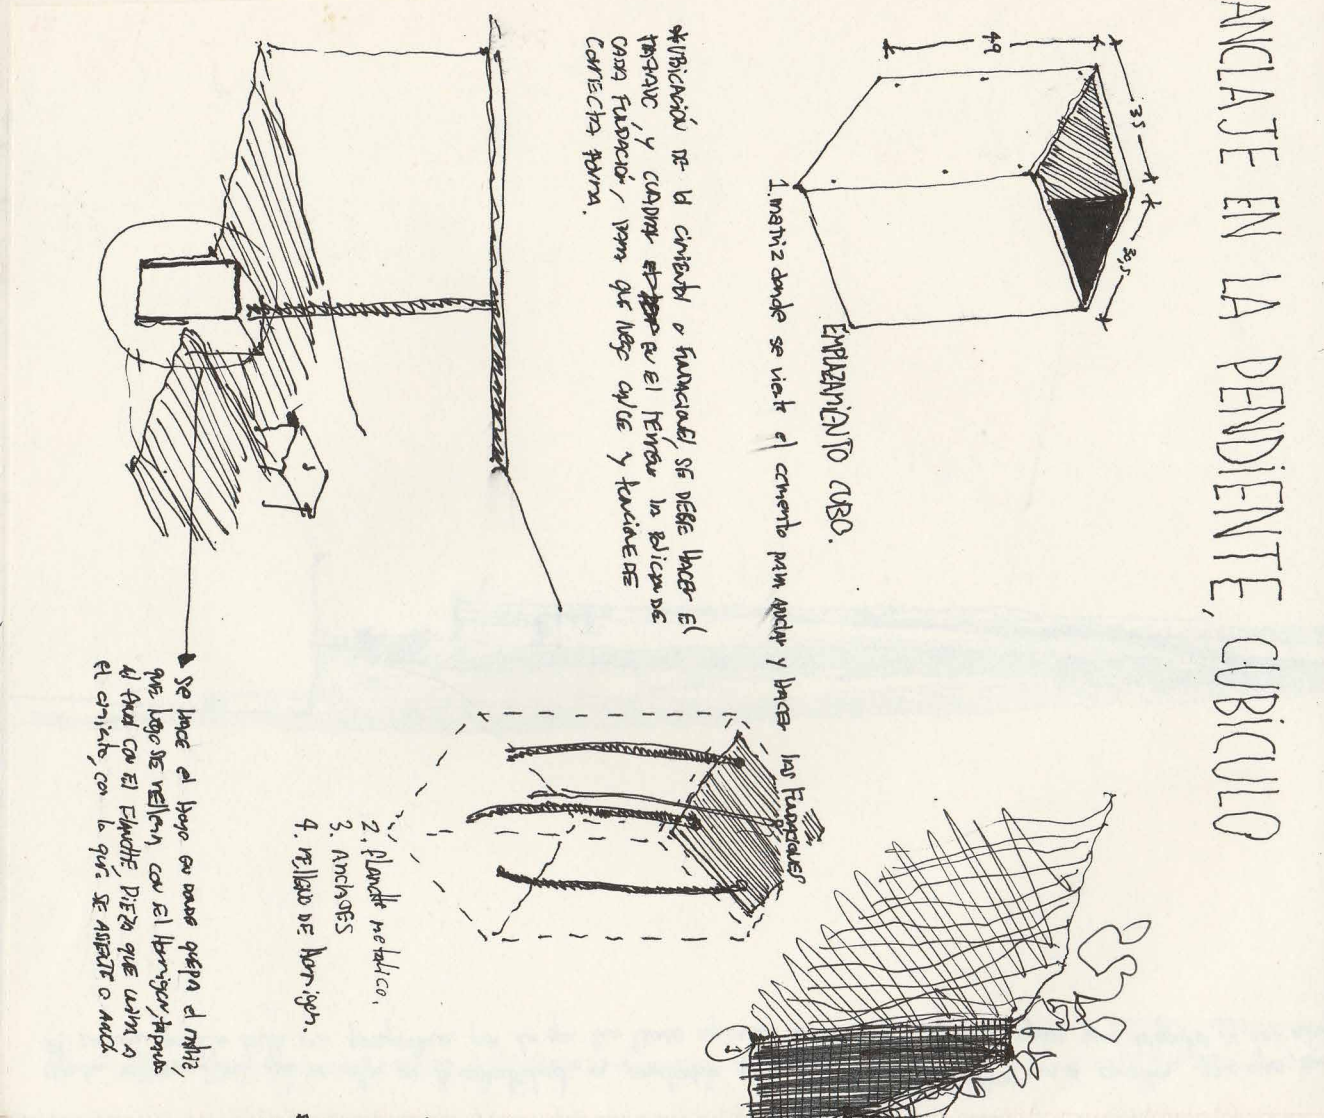 ANCLAJE EN LA PENDIENTE, CUBÍCULO
49
35
30,5
EMPLAZAMIENTO CUBO.
1. matriz donde se vierte el cemento para anclar y hacer las Fundaciones
UBICACIÓN DE el cimiento o fundaciones, SE DEBE HACER El
TRAZADO, y cuadrar en el terreno la policara DE
CADA Fundación, para que luego calce y funcione DE
correcta forma.
2. planche metalico.
3. Anclajes
4. relleno DE Hormigon.
Se hace el hoyo en donde quepa el matriz,
que luego se rellena con el Hormigon, tapando
el final con El Flanche, Pieza que la
el cimiento, con lo que SE ASIENTE O Ancla